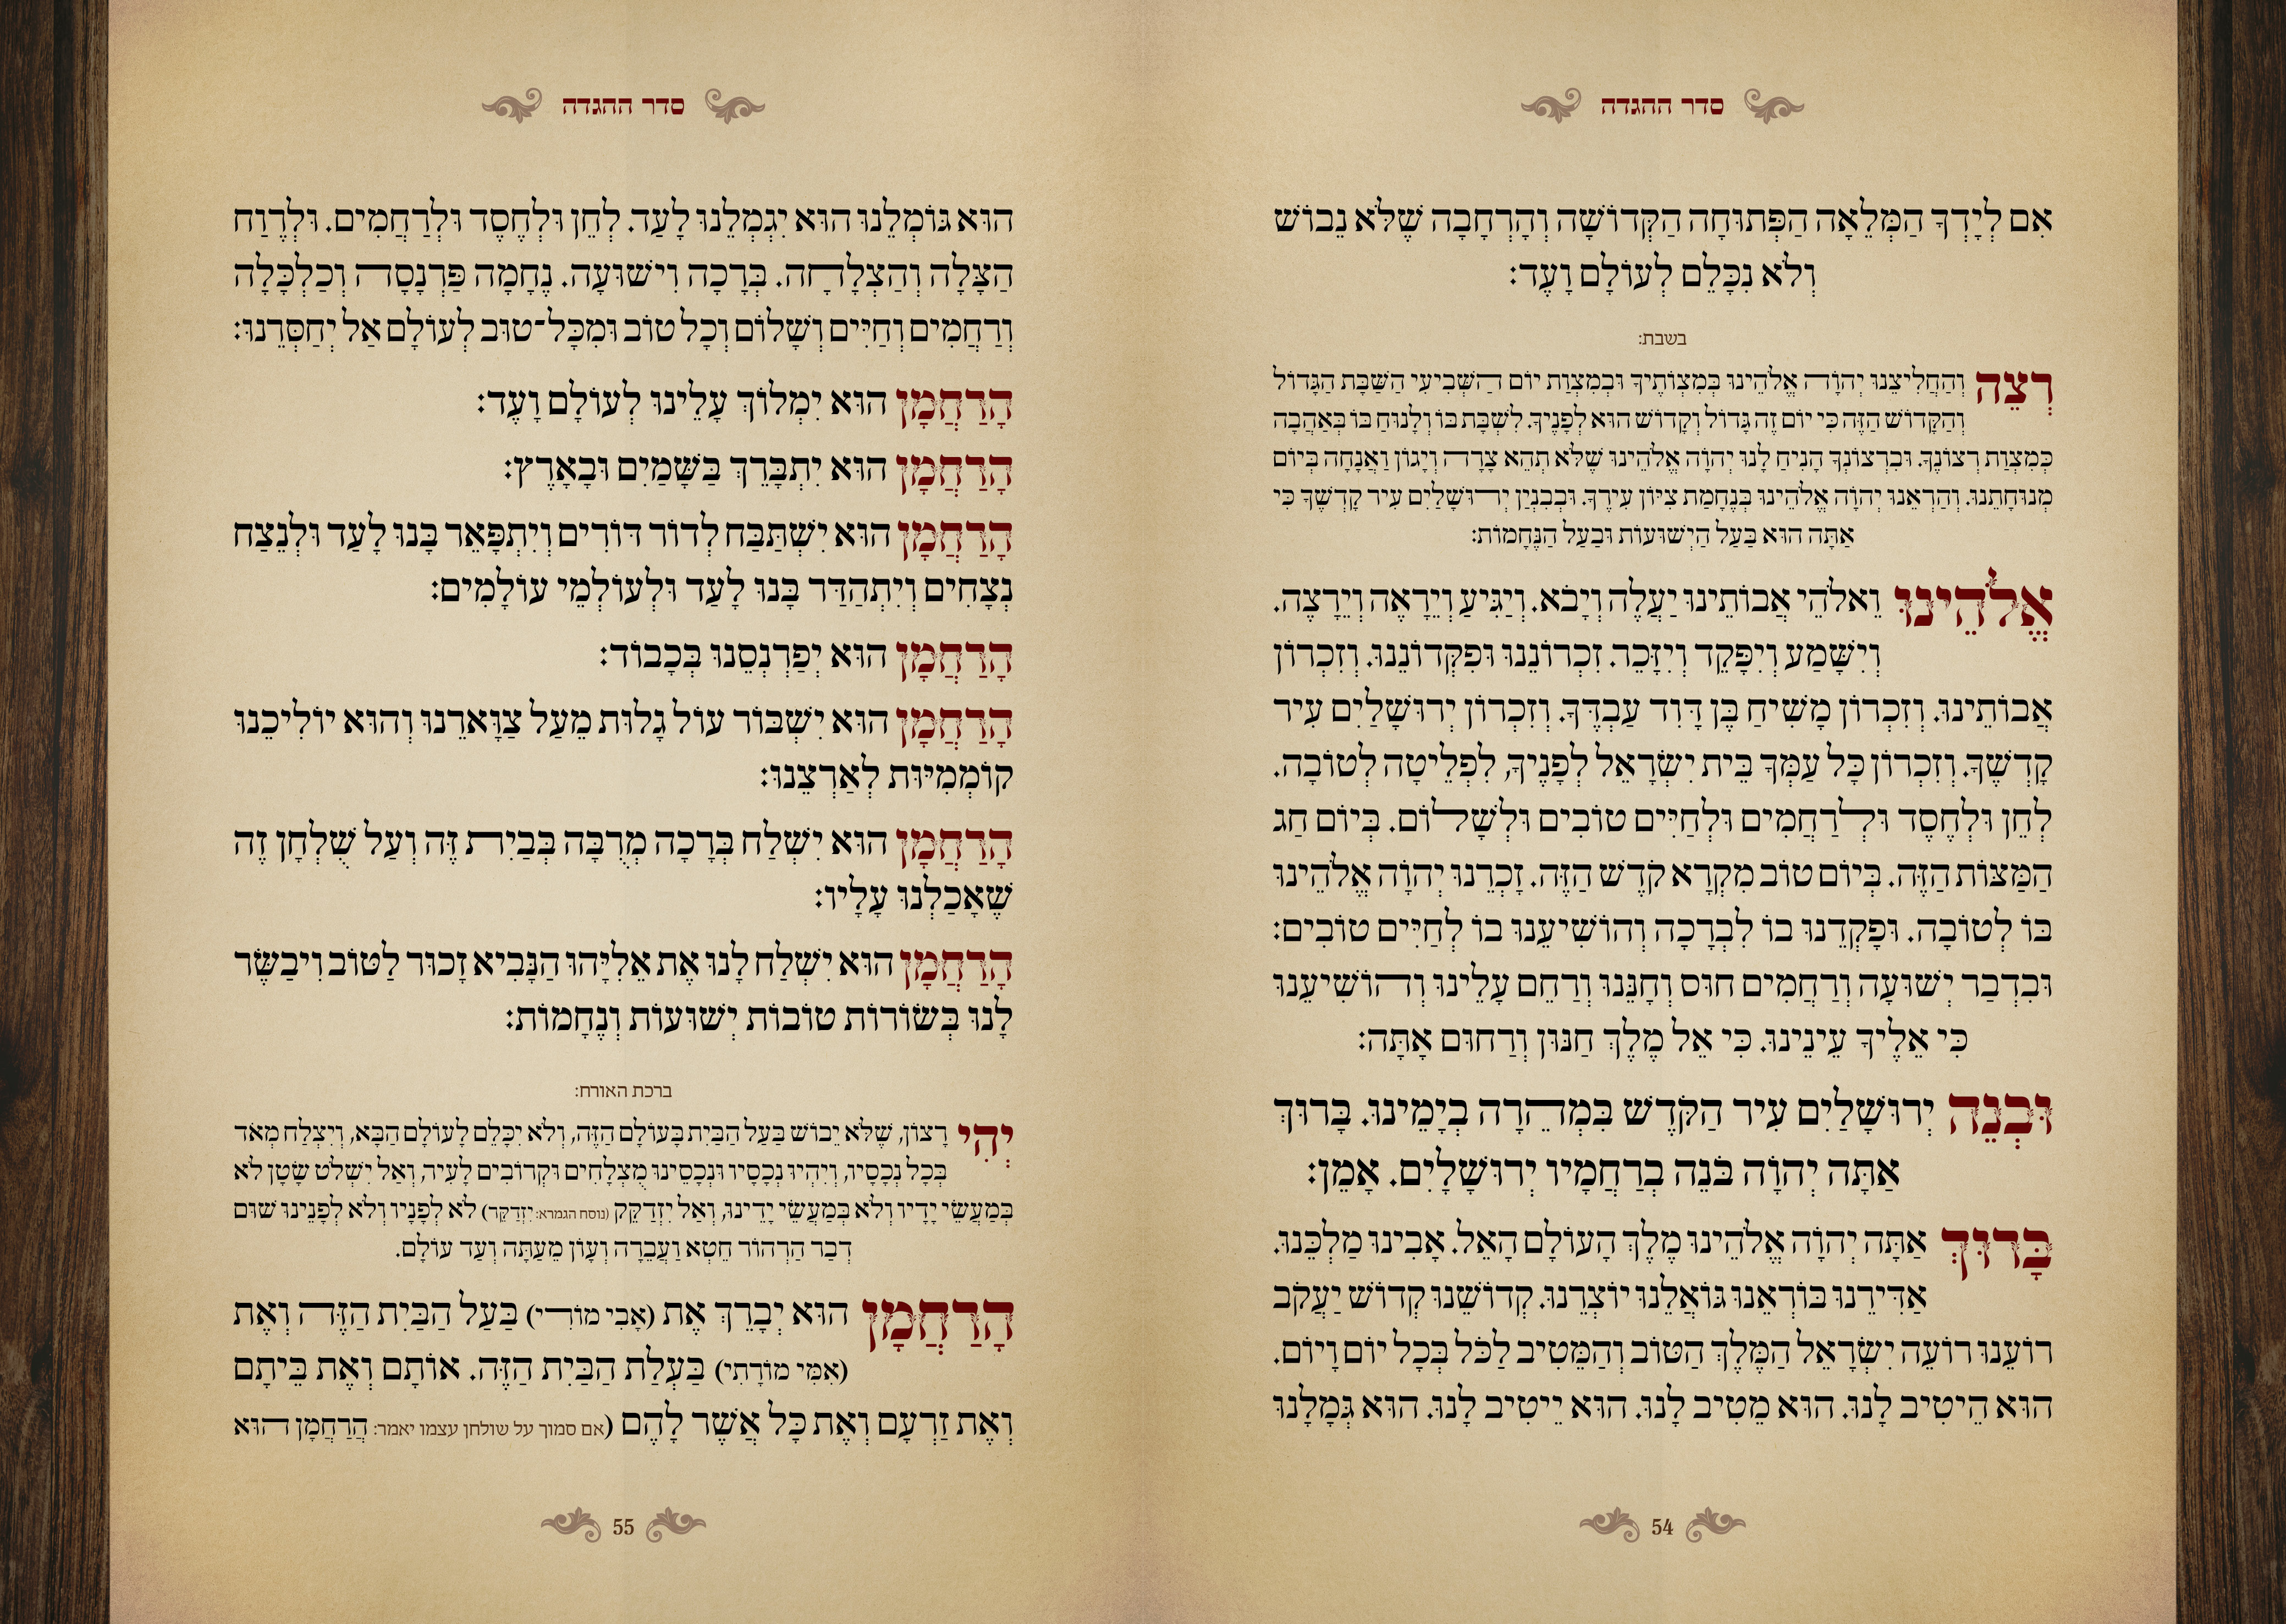 סדר ההגדה
אִם לְיָדְךָ הַמְּלֵאָה הַפְּתוּחָה הַקְּדוֹשָׁה וְהָרְחָבָה שֶׁלֹּא נֵבוֹשׁ
וְלֹא נִכָּלֵם לְעוֹלָם וָעֶד:
בשבת:
רְצֵה וְהַחֲלִיצֵנוּ יְהוָֹה אֱלֹהֵינוּ בְּמִצְוֹתֶיךָ וּבְמִצְוַת יוֹם הַשְּׁבִיעִי הַשַּׁבָּת הַגָּדוֹל
וְהַקָּדוֹשׁ הַזֶּה כִּי יוֹם זֶה גָּדוֹל וְקָדוֹשׁ הוּא לְפָנֶיךָ. לִשְׁבָּת בּוֹ וְלָנוּחַ בּוֹ בְּאַהֲבָה
כְּמִצְוַת רְצוֹנֶךָ. וּבִרְצוֹנְךָ הָנִיחַ לָנוּ יְהוָֹה אֱלֹהֵינוּ שֶׁלֹּא תְהֵא צָרָה וְיָגוֹן וַאֲנָחָה בְּיוֹם
מְנוּחָתֵנוּ. וְהַרְאֵנוּ יְהוָֹה אֱלֹהֵינוּ בְּנֶחָמַת צִיּוֹן עִירֶךָ. וּבְבִנְיַן יְרוּשָׁלַיִם עִיר קָדְשֶׁךָ כִּי
אַתָּה הוּא בַּעַל הַיְשׁוּעוֹת וּבַעַל הַנֶּחָמוֹת:
אֱלֹהֵינוּ וֵאלֹהֵי אֲבוֹתֵינוּ יַעֲלֶה וְיָבֹא. וְיַגִּיעַ וְיֵרָאֶה וְיֵרָצֶה.
וְיִשָּׁמַע וְיִפָּקֵד וְיִזָּכֵר. זִכְרוֹנֵנוּ וּפִקְּדוֹנֵנוּ. וְזִכְרוֹן
אֲבוֹתֵינוּ. וְזִכְרוֹן מָשִׁיחַ בֶּן דָּוִד עַבְדֶּךָ. וְזִכְרוֹן יְרוּשָׁלַיִם עִיר
קָדְשֶׁךָ. וְזִכְרוֹן כָּל עַמְּךָ בֵּית יִשְׂרָאֵל לְפָנֶיךָ, לִפְלֵיטָה לְטוֹבָה.
לְחֵן וּלְחֶסֶד וּלְרַחֲמִים וּלְחַיִּים טוֹבִים וּלְשָׁלוֹם. בְּיוֹם חַג
הַמַּצוֹת הַזֶּה. בְּיוֹם טוֹב מִקְרָא קֹדֶשׁ הַזֶּה. זָכְרֵנוּ יְהוָֹה אֱלֹהֵינוּ
בּוֹ לְטוֹבָה. וּפָקְדֵנוּ בוֹ לִבְרָכָה וְהוֹשִׁיעֵנוּ בוֹ לְחַיִּים טוֹבִים:
וּבִדְבַר יְשׁוּעָה וְרַחֲמִים חוּס וְחָנֵּנוּ וְרַחֵם עָלֵינוּ וְהוֹשִׁיעֵנוּ
כִּי אֵלֶיךָ עֵינֵינוּ. כִּי אֵל מֶלֶךְ חַנּוּן וְרַחוּם אָתָּה:
וּבְנֵה יְרוּשָׁלַיִם עִיר הַקֹּדֶשׁ בִּמְהֵרָה בְיָמֵינוּ. בָּרוּךְ
אַתָּה יְהוָֹה בֹּנֵה בְרַחֲמָיו יְרוּשָׁלָיִם. אָמֵן:
בָּרוּךְ אַתָּה יְהוָֹה אֱלֹהֵינוּ מֶלֶךְ הָעוֹלָם הָאֵל. אָבִינוּ מַלְכֵּנוּ.
אַדִּירֵנוּ בּוֹרְאֵנוּ גּוֹאֲלֵנוּ יוֹצְרֵנוּ. קְדוֹשֵׁנוּ קְדוֹשׁ יַעֲקֹב
רוֹעֵנוּ רוֹעֵה יִשְׂרָאֵל הַמֶּלֶךְ הַטּוֹב וְהַמֵּטִיב לַכֹּל בְּכָל יוֹם וָיוֹם.
הוּא הֵיטִיב לָנוּ. הוּא מֵטִיב לָנוּ. הוּא יֵיטִיב לָנוּ. הוּא גְּמָלָנוּ
54
סדר ההגדה
הוּא גּוֹמְלֵנוּ הוּא יִגְמְלֵנוּ לָעַד. לְחֵן וּלְחֶסֶד וּלְרַחֲמִים. וּלְרֶוַח
הַצָּלָה וְהַצְלָחָה. בְּרָכָה וִישׁוּעָה. נֶחָמָה פַּרְנָסָה וְכַלְכָּלָה
וְרַחֲמִים וְחַיִּים וְשָׁלוֹם וְכָל טוֹב וּמִכָּל־טוּב לְעוֹלָם אַל יְחַסְּרֵנוּ:
הָרַחֲמָן הוּא יִמְלוֹךְ עָלֵינוּ לְעוֹלָם וָעֶד:
הָרַחֲמָן הוּא יִתְבָּרֵךְ בַּשָּׁמַיִם וּבָאָרֶץ:
הָרַחֲמָן הוּא יִשְׁתַּבַּח לְדוֹר דּוֹרִים וְיִתְפָּאֵר בָּנוּ לָעַד וּלְנֵצַח
נְצָחִים וְיִתְהַדַּר בָּנוּ לָעַד וּלְעוֹלְמֵי עוֹלָמִים:
הָרַחֲמָן הוּא יְפַרְנְסֵנוּ בְּכָבוֹד:
הָרַחֲמָן הוּא יִשְׁבּוֹר עוֹל גָּלוּת מֵעַל צַוָּארֵנוּ וְהוּא יוֹלִיכֵנוּ
קוֹמְמִיּוּת לְאַרְצֵנוּ:
הָרַחֲמָן הוּא יִשְׁלַח בְּרָכָה מְרֻבָּה בְּבַיִת זֶּה וְעַל שֻׁלְחָן זֶה
שֶׁאָכַלְנוּ עָלָיו:
הָרַחֲמָן הוּא יִשְׁלַח לָנוּ אֶת אֵלִיָּהוּ הַנָּבִיא זָכוּר לַטּוֹב וִיבַשֶּׂר
לָנוּ בְּשׂוֹרוֹת טוֹבוֹת יְשׁוּעוֹת וְנֶחָמוֹת:
ברכת האורח:
יְהִי רָצוֹן, שֶׁלֹּא יֵבוֹשׁ בַּעַל הַבַּיִת בָּעוֹלָם הַזֶּה, וְלֹא יִכָּלֵם לָעוֹלָם הַבָּא, וְיִצְלַח מְאֹד
בְּכָל נְכָסָיו, וְיִהְיוּ נְכָסָיו וּנְכָסֵינוּ מֻצְלָחִים וּקְרוֹבִים לָעִיר, וְאַל יִשְׁלֹט שָׂטָן לֹא
בְּמַעֲשֵׂי יָדָיו וְלֹא בְּמַעֲשֵׂי יָדֵינוּ, וְאַל יִזְדַקֵּק (נוסח הגמרא: יִזְדַקֵּר) לֹא לְפָנָיו וְלֹא לְפָנֵינוּ שׁוּם
דְּבַר הַרְהוֹר חֵטְא וַעֲבֵרָה וְעָוֹן מֵעַתָּה וְעַד עוֹלָם.
הָרַחֲמָן הוּא יְבָרֵךְ אֶת (אָבִי מוֹרִי) בַּעַל הַבַּיִת הַזֶּה וְאֶת
(אִמִּי מוֹרָתִי) בַּעְלַת הַבַּיִת הַזֶּה. אוֹתָם וְאֶת בֵּיתָם
וְאֶת זַרְעָם וְאֶת כָּל אֲשֶׁר לָהֶם (אם סמוך על שולחן עצמו יאמר: הָרַחֲמָן הוּא
55